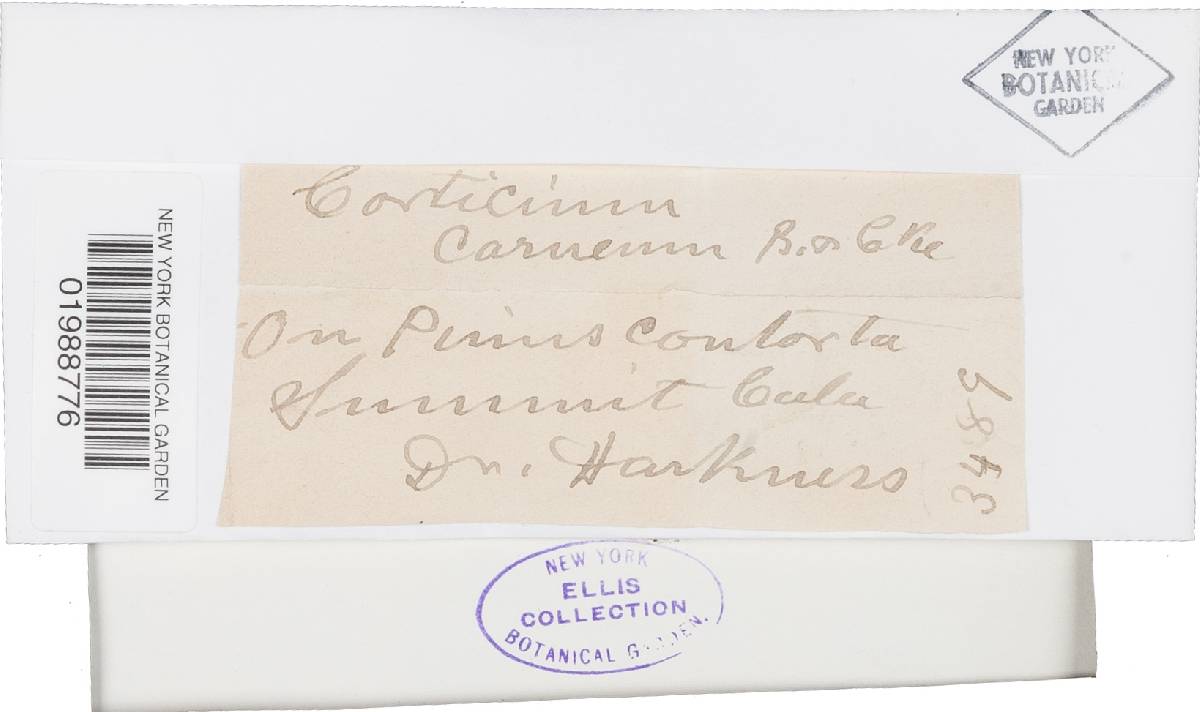 NEW YORK
BOTANICAL
GARDEN
Corticium
carneum B. & Cke
On Pinus contorta
Summit Cala
Dr. Harkness
3489
NEW YORK BOTANICAL GARDEN
01988776
NEW YORK
ELLIS
COLLECTION
BOTANICAL GARDEN.